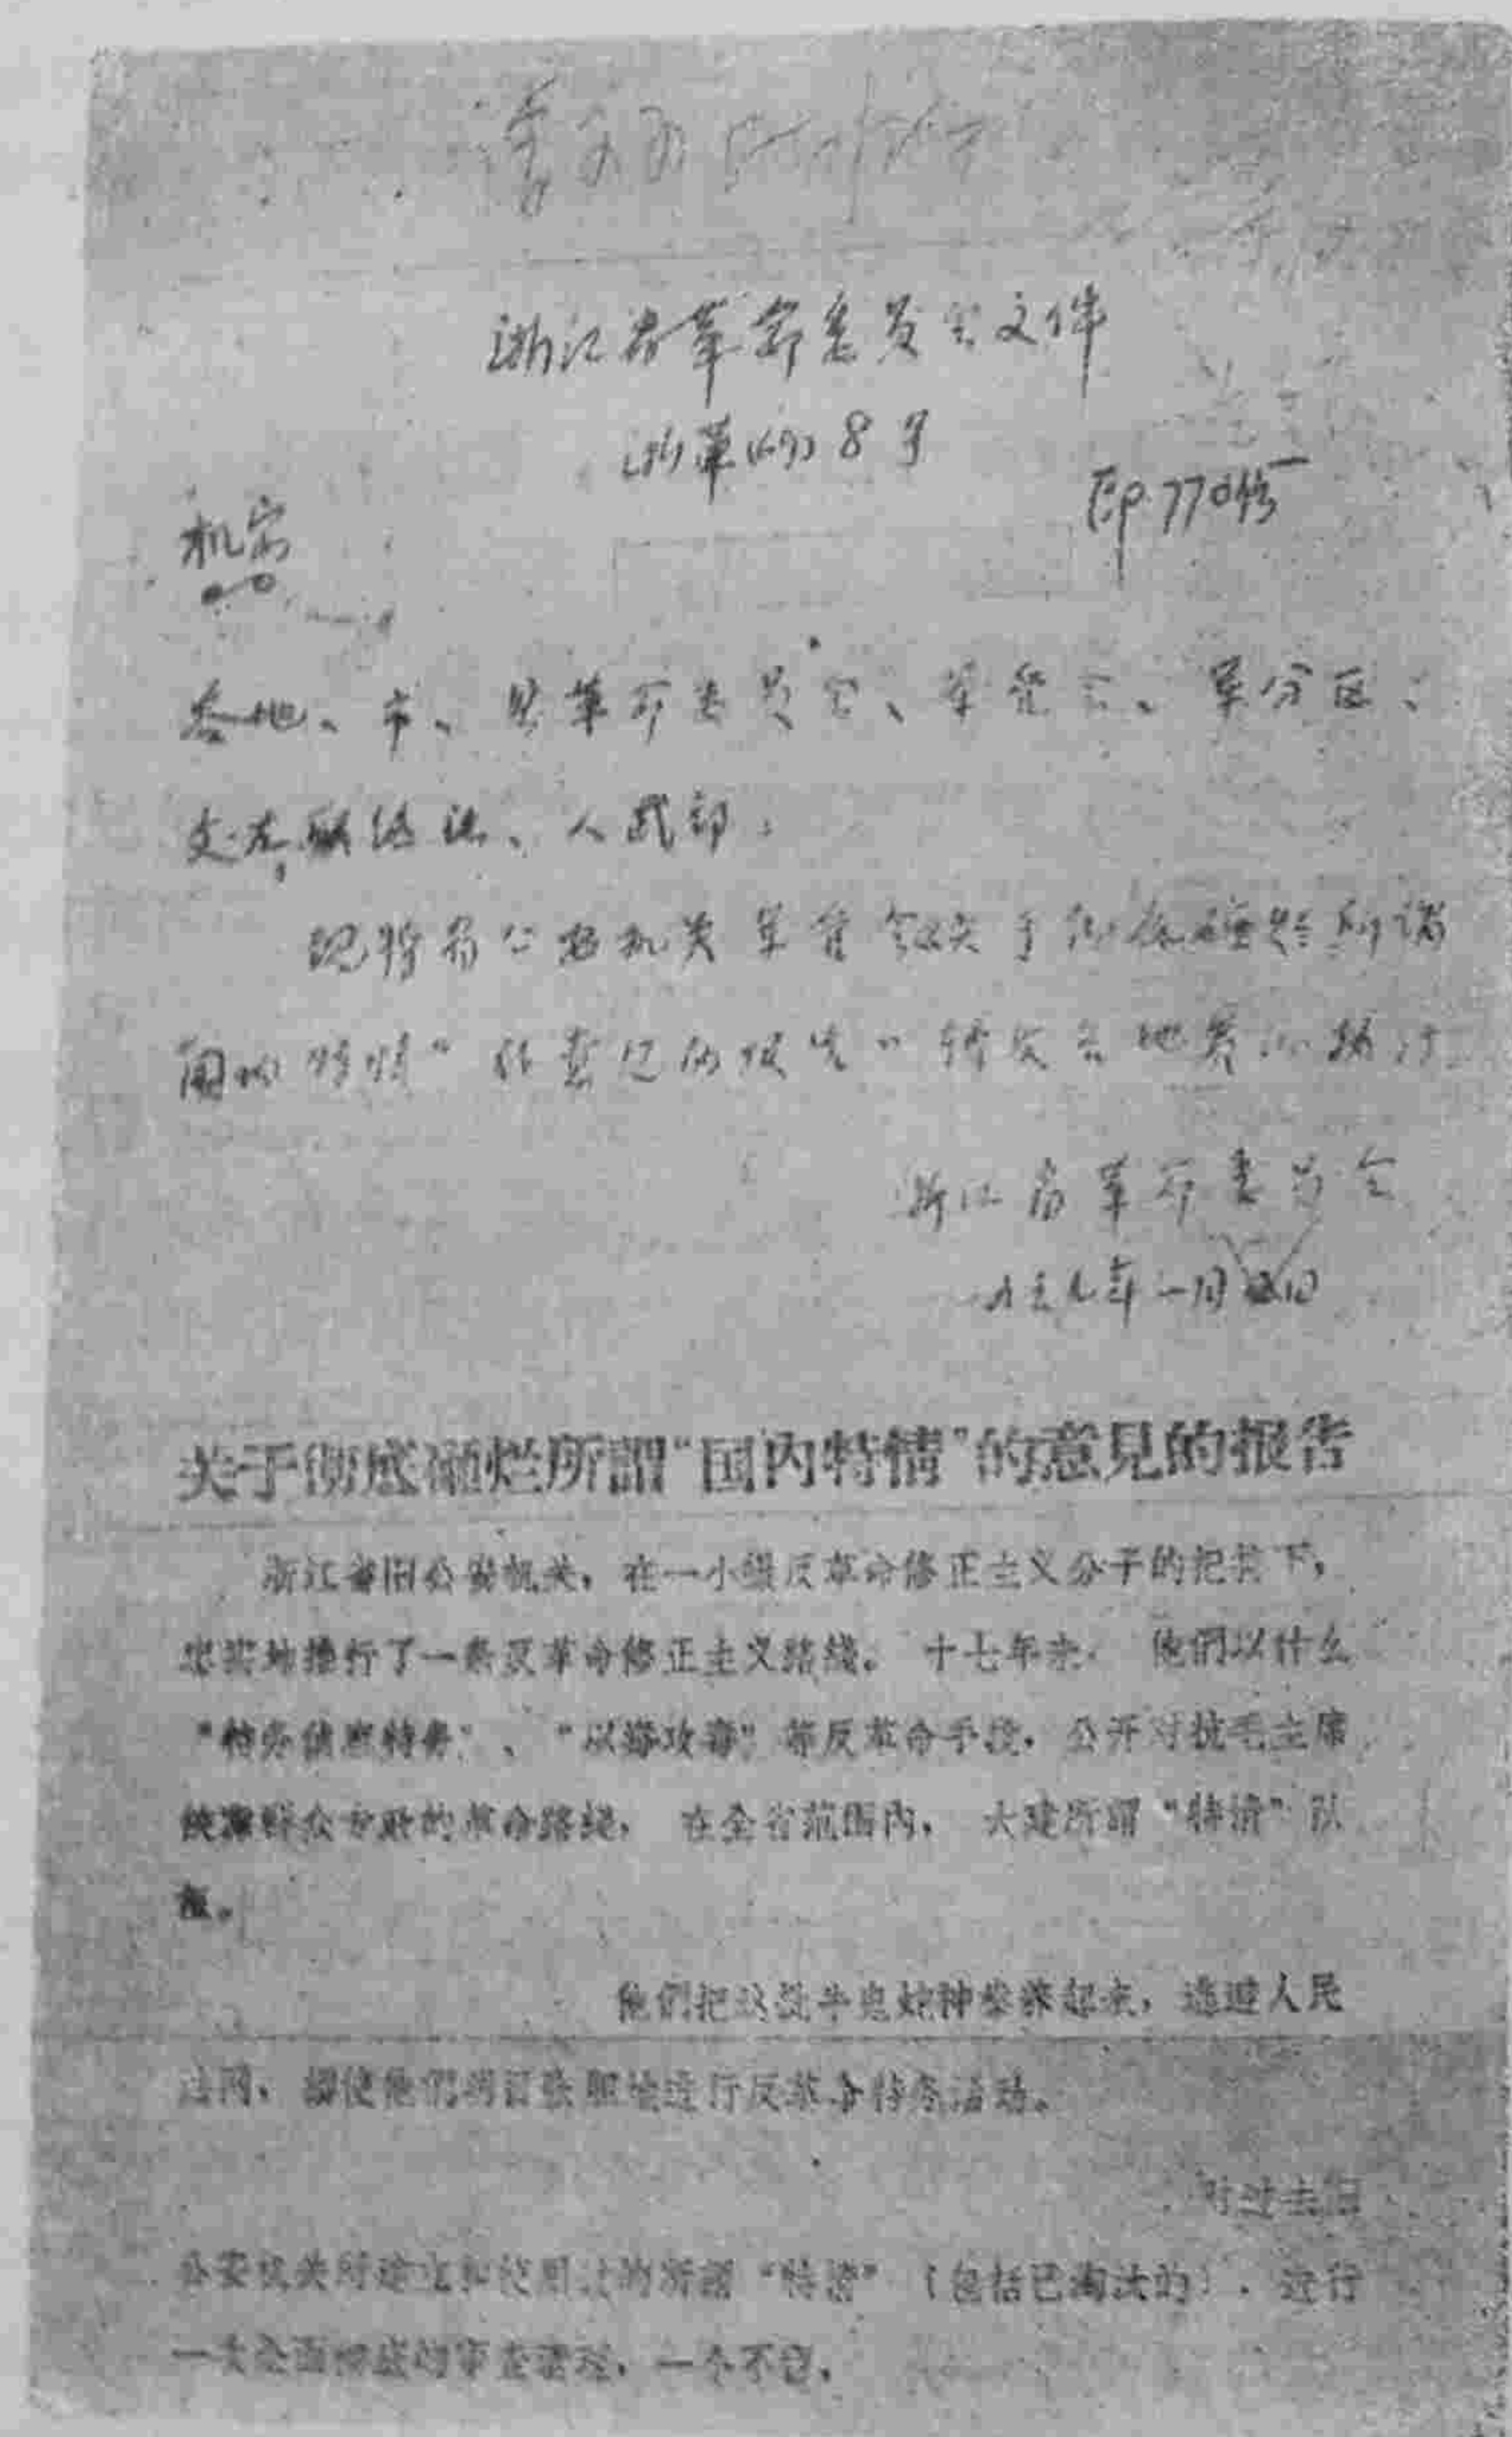 浙江省革命委员会文件
浙革(69)8号
机密
印770份
各地、市、县革命委员会、军管会、军分区、
支左联络站、人武部：
现将省公安机关军管会"关于彻底砸烂所谓
国内特情"的意见的报告"转发各地
浙江省革命委员会
一月
关于彻底砸烂所謂“国内特情”的意見的报告
浙江省旧公安机关，在一小撮反革命修正主义分子的把持下，
忠实地推行了一条反革命修正主义路綫。十七年来，他們以什么
“特务侦察特务”、“以毒攻毒”等反革命手段，公开对抗毛主席
群众专政的革命路綫，在全省范围内，大建所謂“特情”队
他們把这批牛鬼蛇神豢养起来，逃避人民
法网，縱使他們明目张胆地进行反革命特务活动。
对过去旧
公安机关所建立和使用过的所謂“特情”（包括已淘汰的），进行
一次全面彻底的审查清理，一个不留。